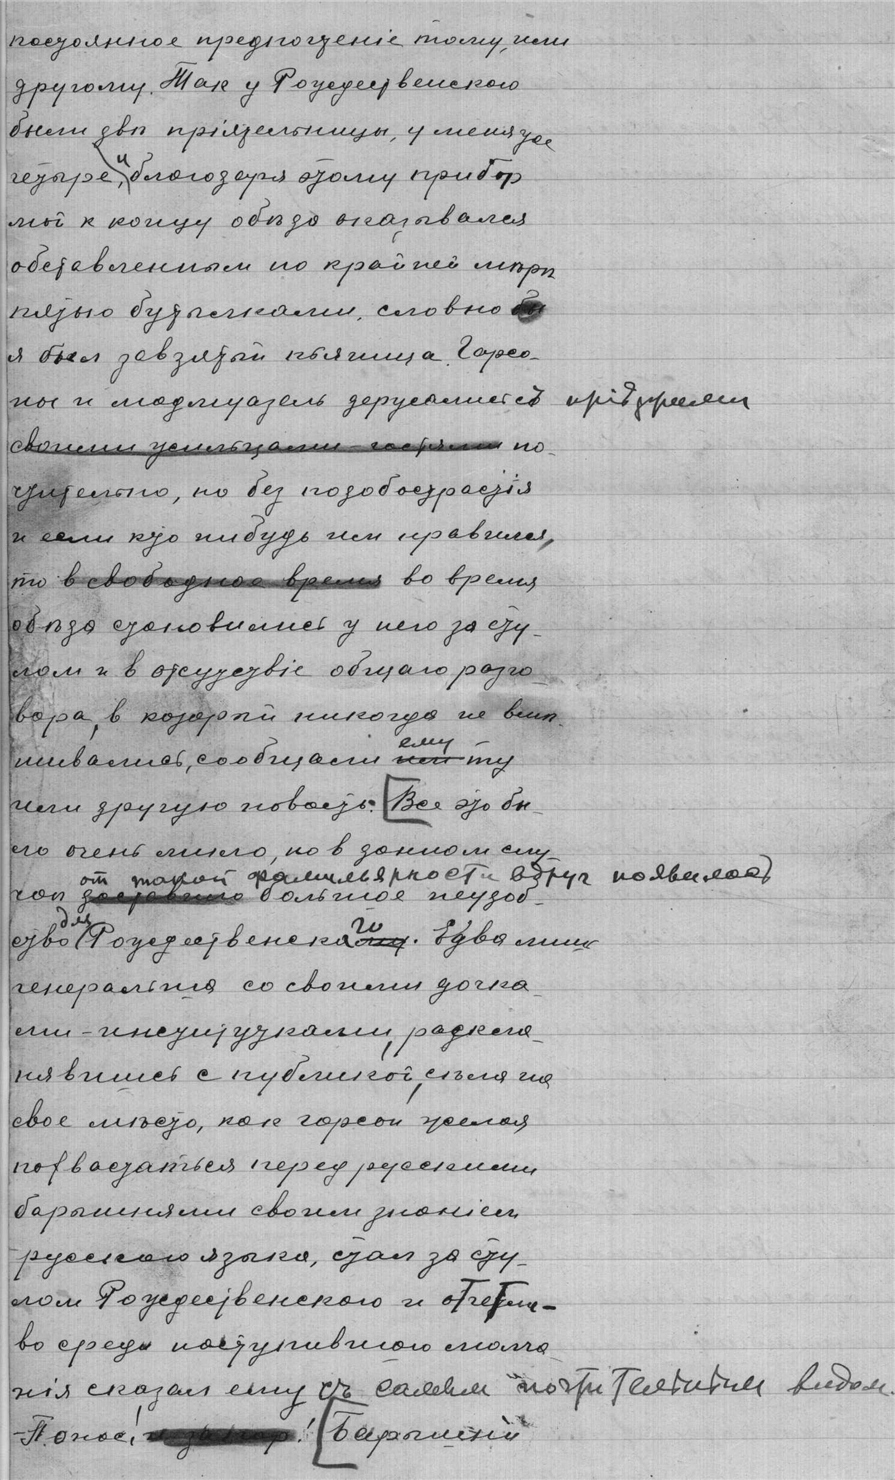 постоянное предпочтеніе тому, или
другому. Так у Рождественскаго
были двѣ пріятельницы, у меня же
четыре, и благодаря этому прибор
мой к концу обѣда оказывался
обставленным по крайней мѣрѣ
пятью бутылками, словно бы
я был завзятый пьяница. Гарсо-
ны и мадмуазель держались съ
своими усильцами-гостями по-
чтительно, но без подобострастія
и если кто нибудь им нравился,
то в свободное время во время
обѣда становились у него за сту-
лом и в отсутствіе общаго разго-
вора, в который никогда не вмѣ-
шивались, сообщали ему ту
или другую новость. [Все это бы-
ло очень мило, но в данном слу-
от такой фамильярности вдруг появилось
чаѣ заставило большое неудоб-
ство для Рождественскаго. Едва лишь
генеральша со своими дочка-
ми-институтками, раскла-
нявшись с публикой, сѣла на
свое мѣсто, как гарсон желая
похвастаться перед русскими
барышнями своим знаніем
русскаго языка, стал за сту-
лом Рождественскаго и отчетли-
во среди наступившаго молча-
нія сказал ему съ самым почтительным видом.
-Понос! и запор! [Барышни